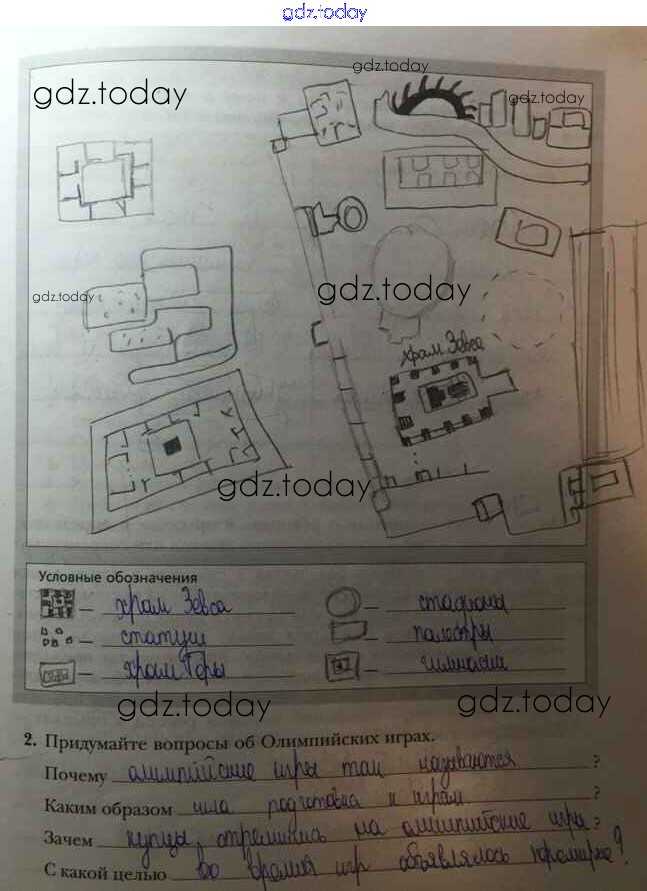 gdz.today
gdz.today
gdz.today
gdz.today
gdz.today
gdz.today
храм Зевса
gdz.today
Условные обозначения
– храм Зевса
– стадионы
– статуи
– палестры
– храм Геры
– гимнасии
gdz.today
gdz.today
2. Придумайте вопросы об Олимпийских играх.
Почему олимпийские игры так называются ?
Каким образом шла подготовка к играм ?
Зачем купцы стремились на олимпийские игры ?
С какой целью во время игр объявлялось ?